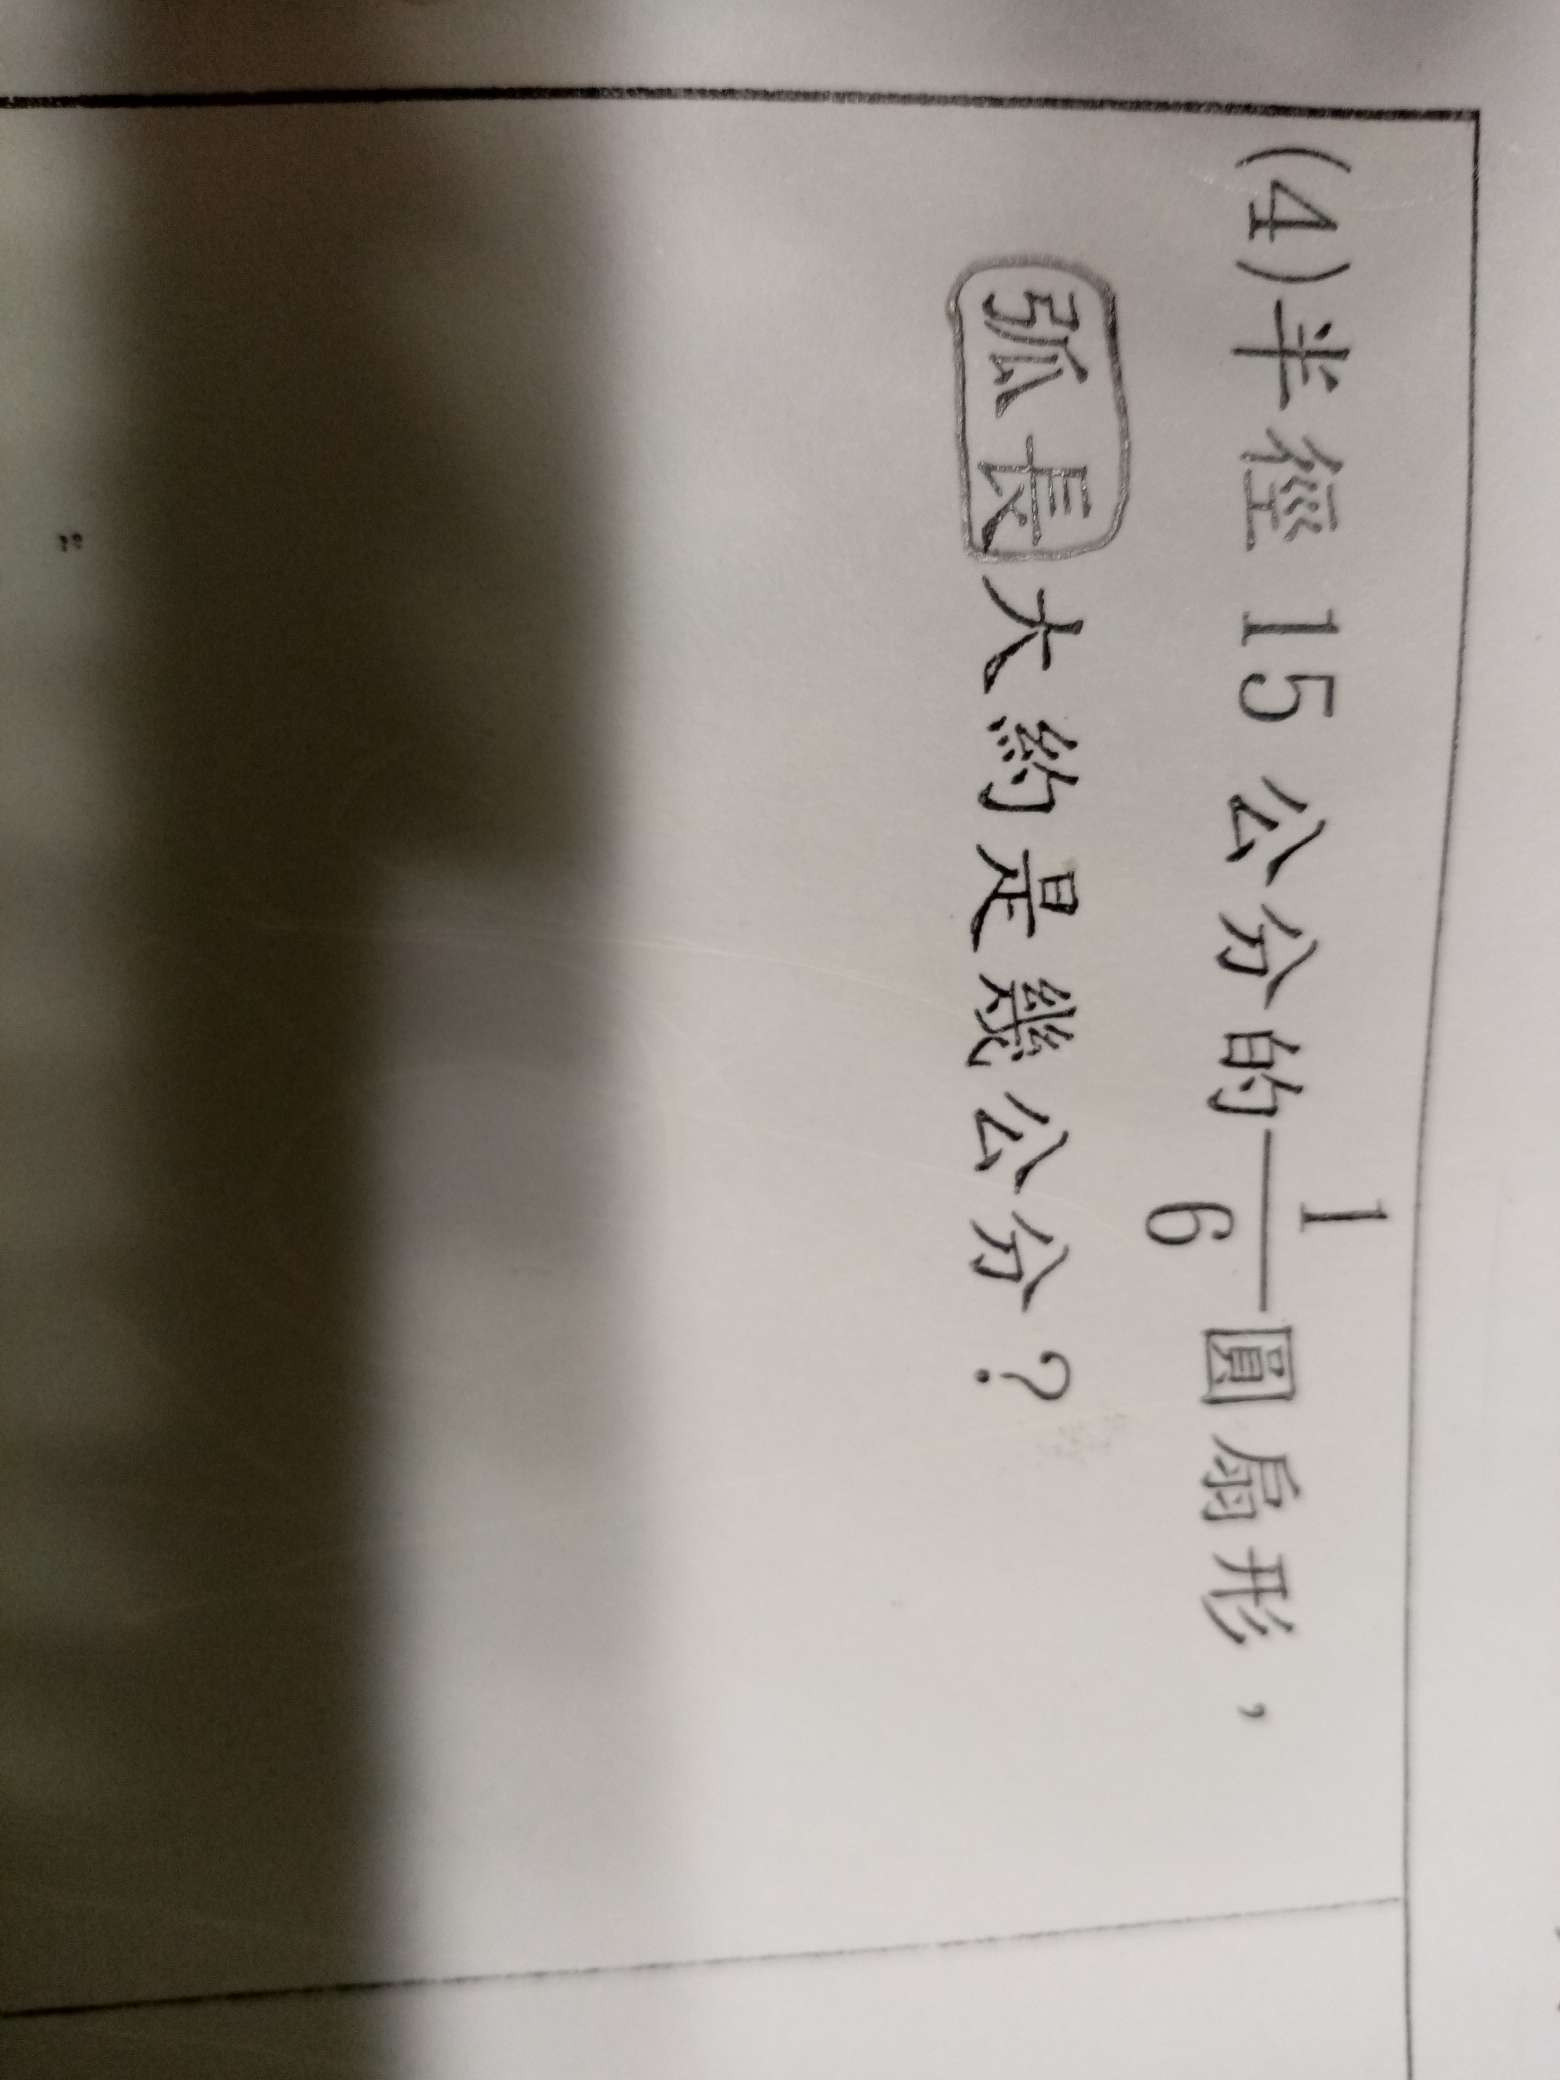 (4)半徑 15 公分的 1/6 圓扇形，
弧長大約是幾公分？